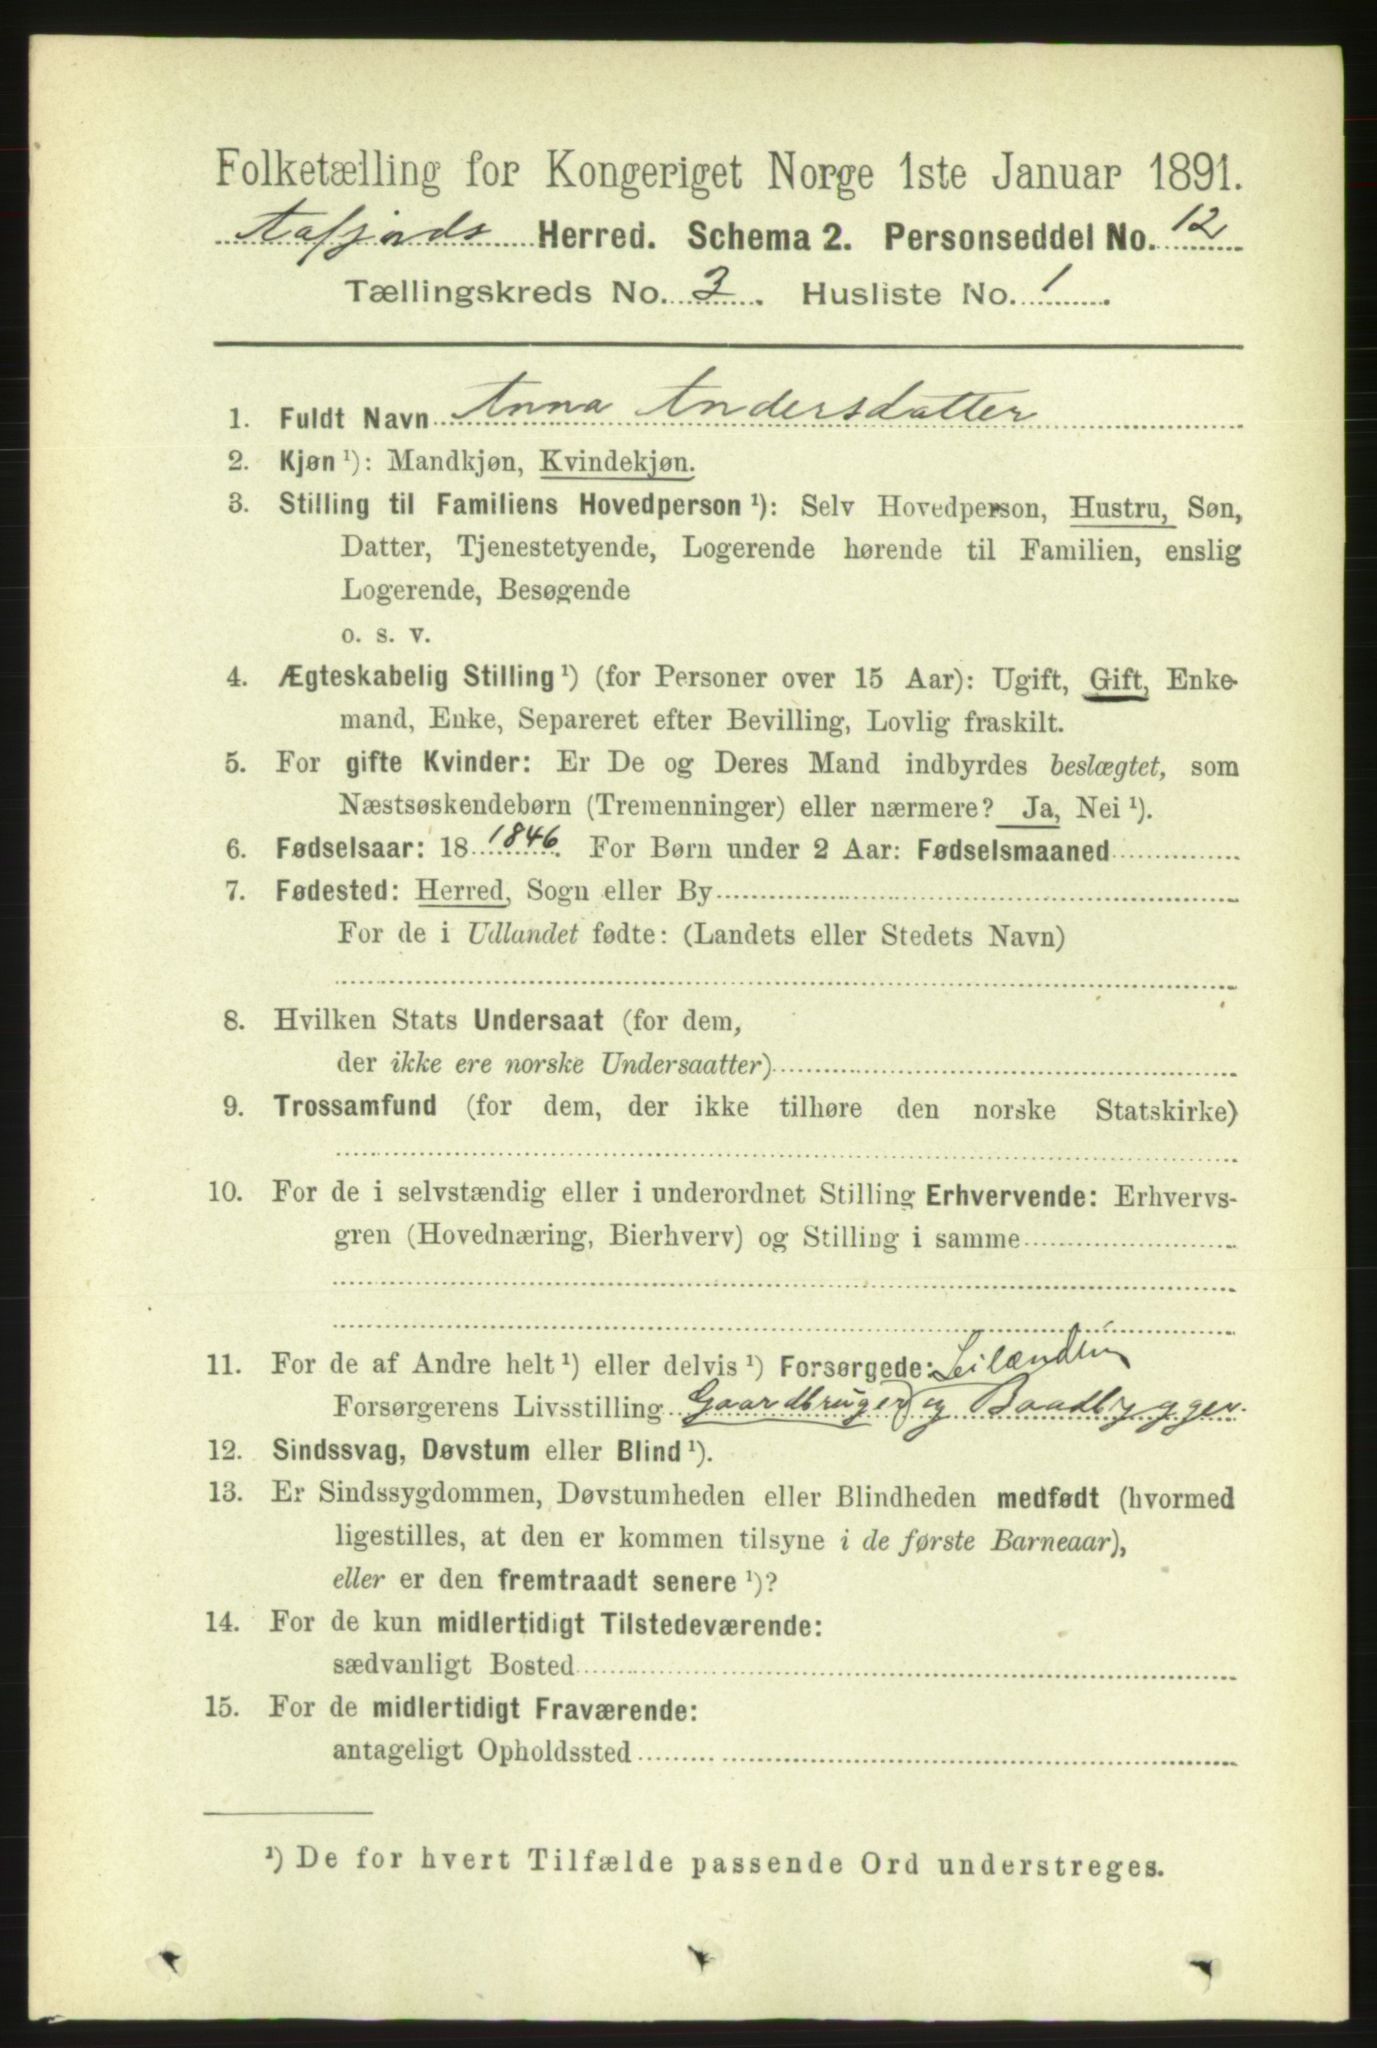 Folketælling for Kongeriget Norge 1ste Januar 1891.
Aafjords Herred. Schema 2. Personseddel No. 12
Tællingskreds No. 3. Husliste No. 1
1. Fuldt Navn Anna Andersdatter
2. Kjøn ¹): Mandkjøn, Kvindekjøn.
3. Stilling til Familiens Hovedperson ¹): Selv Hovedperson, Hustru, Søn,
Datter, Tjenestetyende, Logerende hørende til Familien, enslig
Logerende, Besøgende
o. s. v.
4. Ægteskabelig Stilling ¹) (for Personer over 15 Aar): Ugift, Gift, Enke-
mand, Enke, Separeret efter Bevilling, Lovlig fraskilt.
5. For gifte Kvinder: Er De og Deres Mand indbyrdes beslægtet, som
Næstsøskendebørn (Tremenninger) eller nærmere? Ja, Nei ¹).
6. Fødselsaar: 18 1846. For Børn under 2 Aar: Fødselsmaaned
7. Fødested: Herred, Sogn eller By
For de i Udlandet fødte: (Landets eller Stedets Navn)
8. Hvilken Stats Undersaat (for dem,
der ikke ere norske Undersaatter)
9. Trossamfund (for dem, der ikke tilhøre den norske Statskirke)
10. For de i selvstændig eller i underordnet Stilling Erhvervende: Erhvervs-
gren (Hovednæring, Bierhverv) og Stilling i samme
11. For de af Andre helt ¹) eller delvis ¹) Forsørgede: Leilænding
Forsørgerens Livsstilling Gaardbruger) og Baadbygger.
12. Sindssvag, Døvstum eller Blind ¹).
13. Er Sindssygdommen, Døvstumheden eller Blindheden medfødt (hvormed
ligestilles, at den er kommen tilsyne i de første Barneaar),
eller er den fremtraadt senere ¹)?
14. For de kun midlertidigt Tilstedeværende:
sædvanligt Bosted
15. For de midlertidigt Fraværende:
antageligt Opholdssted
¹) De for hvert Tilfælde passende Ord understreges.